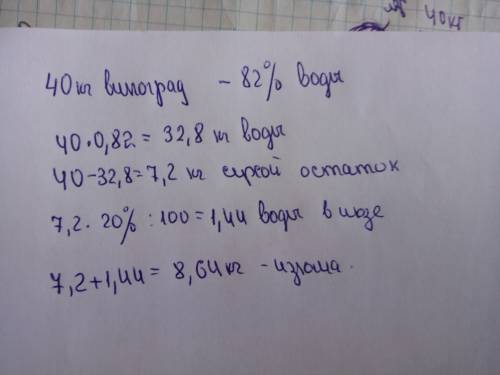 40кг
40кг виноград – 82% воды
40·0,82 = 32,8 кг воды
40–32,8=7,2 кг сухой остаток
7,2· 20% :100 = 1,44 воды в изюме
7,2+1,44= 8,64кг –изюма.